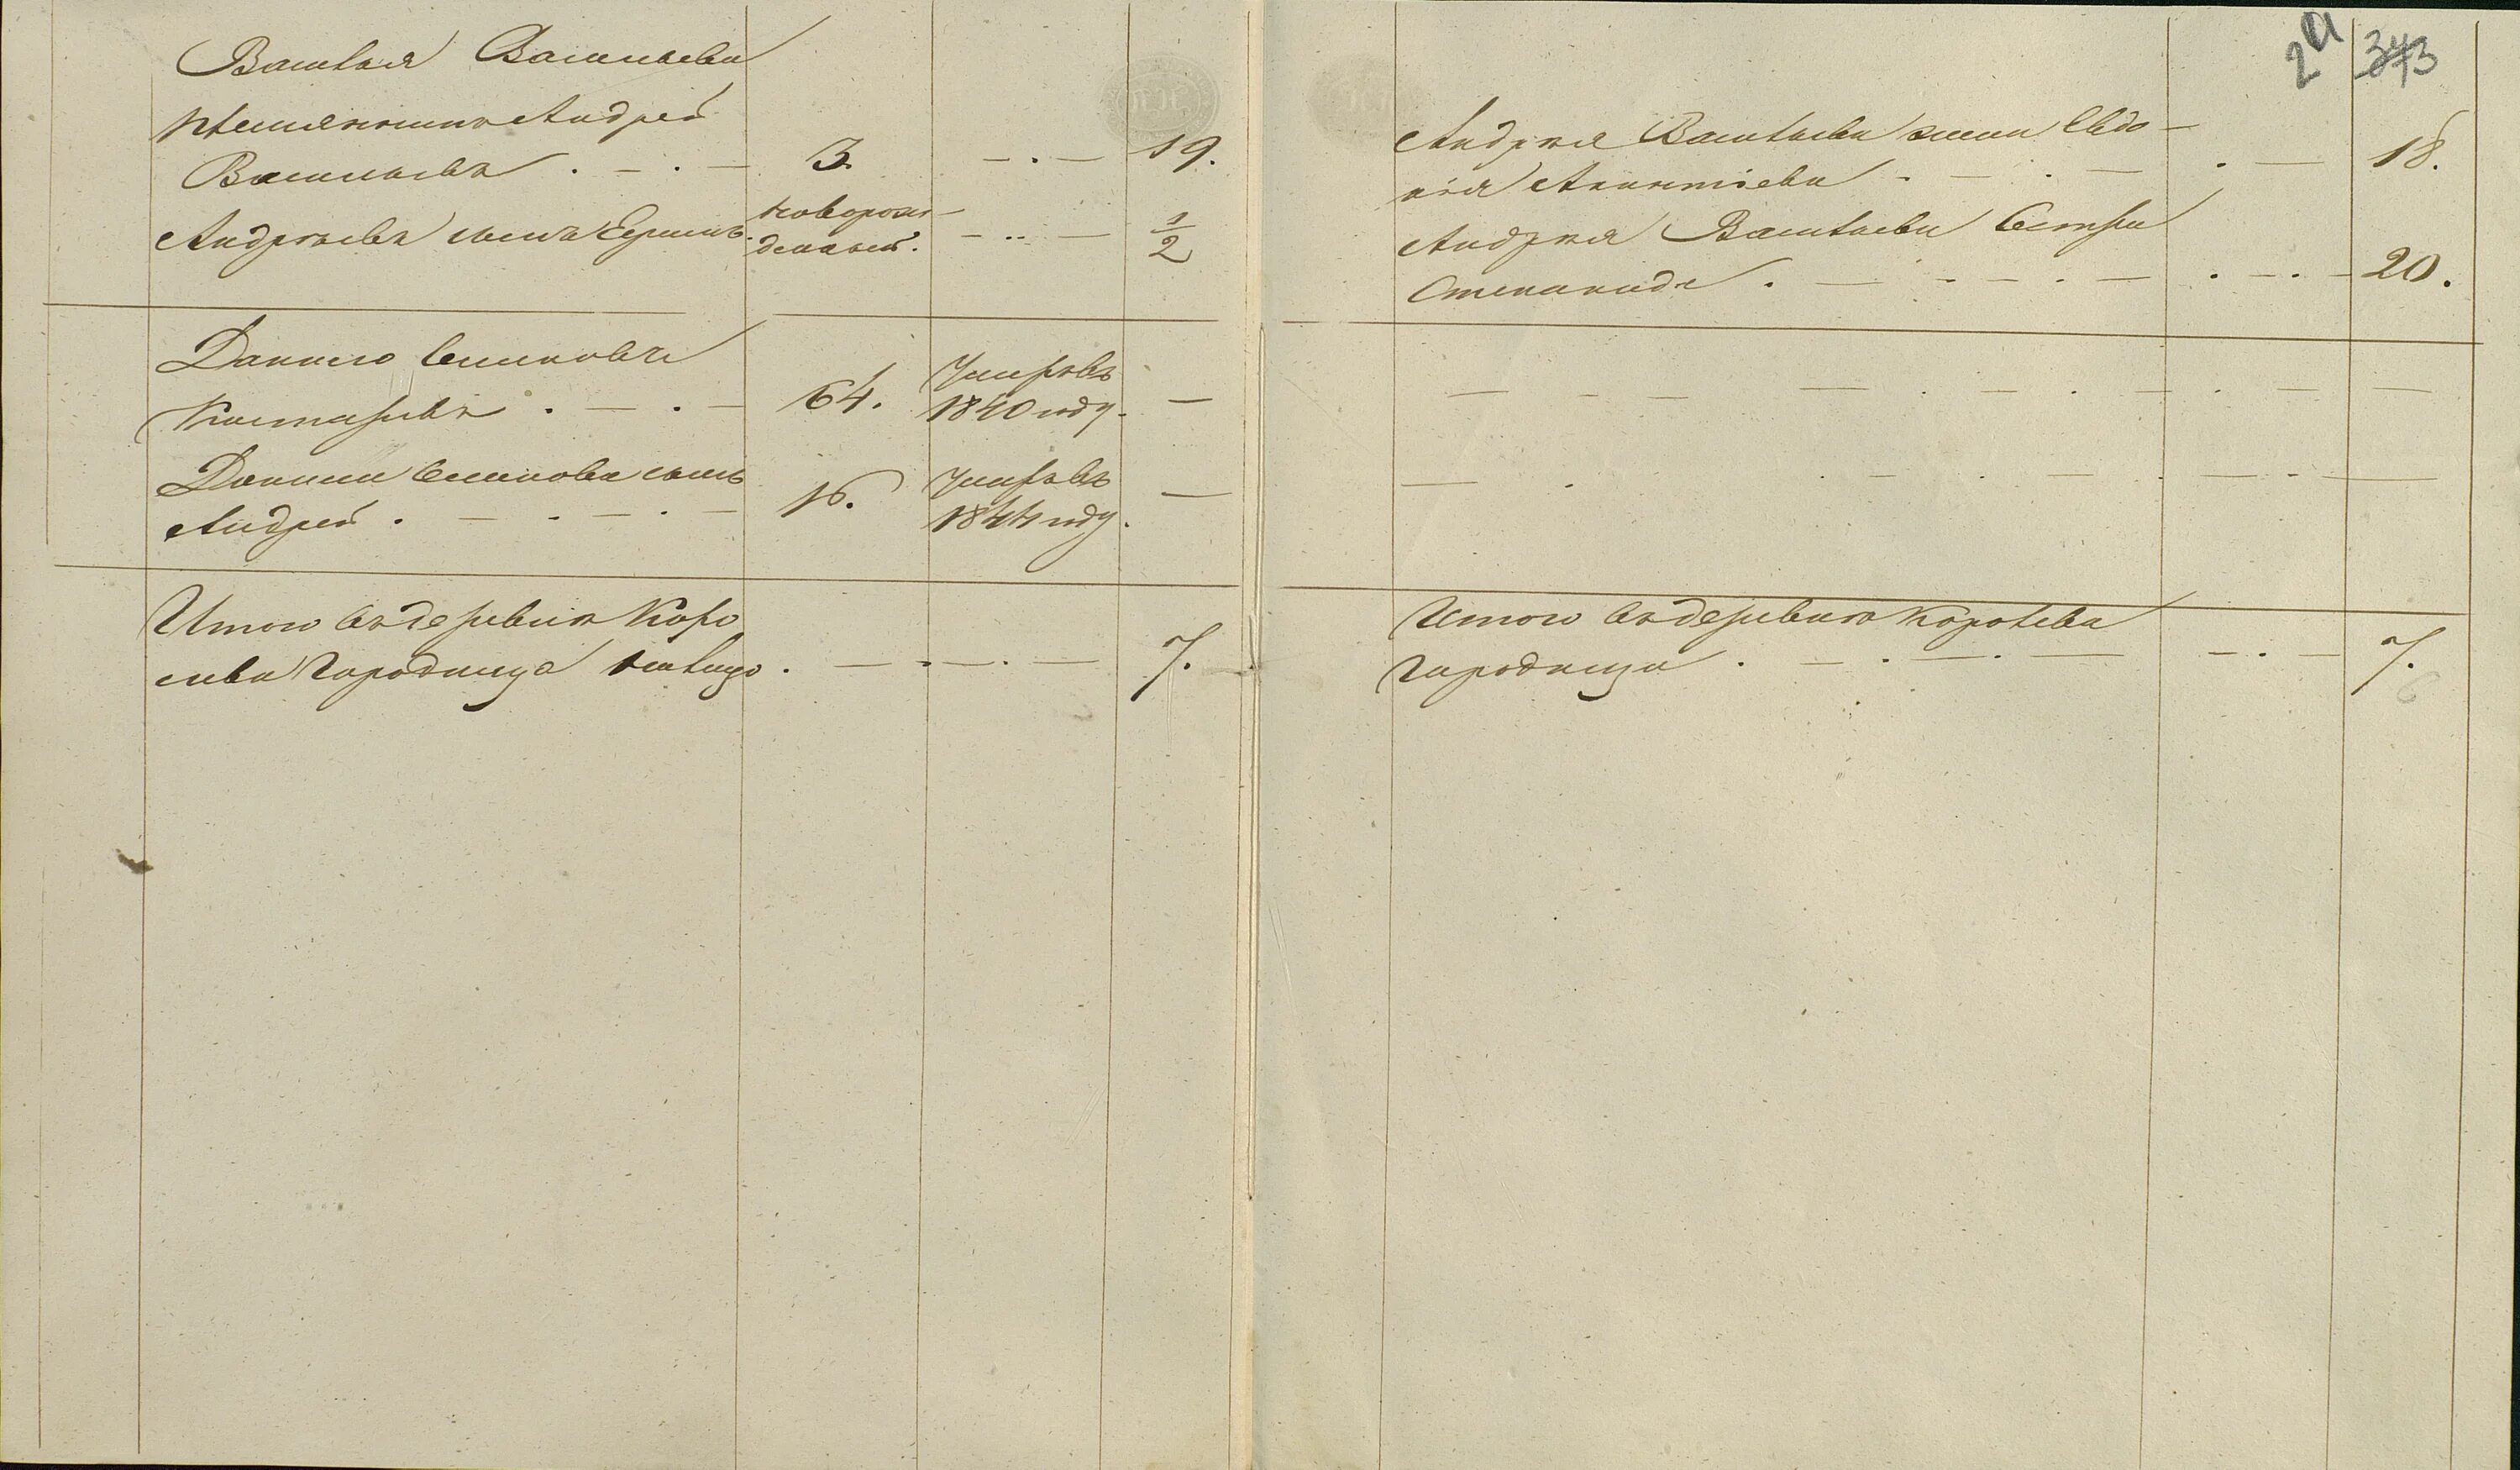 2а 343
Василья Васильева
племянникъ Андрей
Васильевъ . — . — 3. — . — 19.
Андреевъ сынъ Ермилъ. новорож-
денный. — .. — 1/2
Данило Семеновъ
64. Умеръ въ
1840 году. —
Данилы Семенова сынъ
Андрей . — . — . — 16. Умеръ въ
1844 году. —
Итого въ деревнѣ Коро
лева Городища налицо . — . — . — 7.
Андрея Васильева жена Евдо-
кія . — . — . — 18.
Андрея Васильева сестра
Степанида . — . — . — . — . — 20.
Итого въ деревнѣ Королева
Городища . — . — . — — . — 7.
6